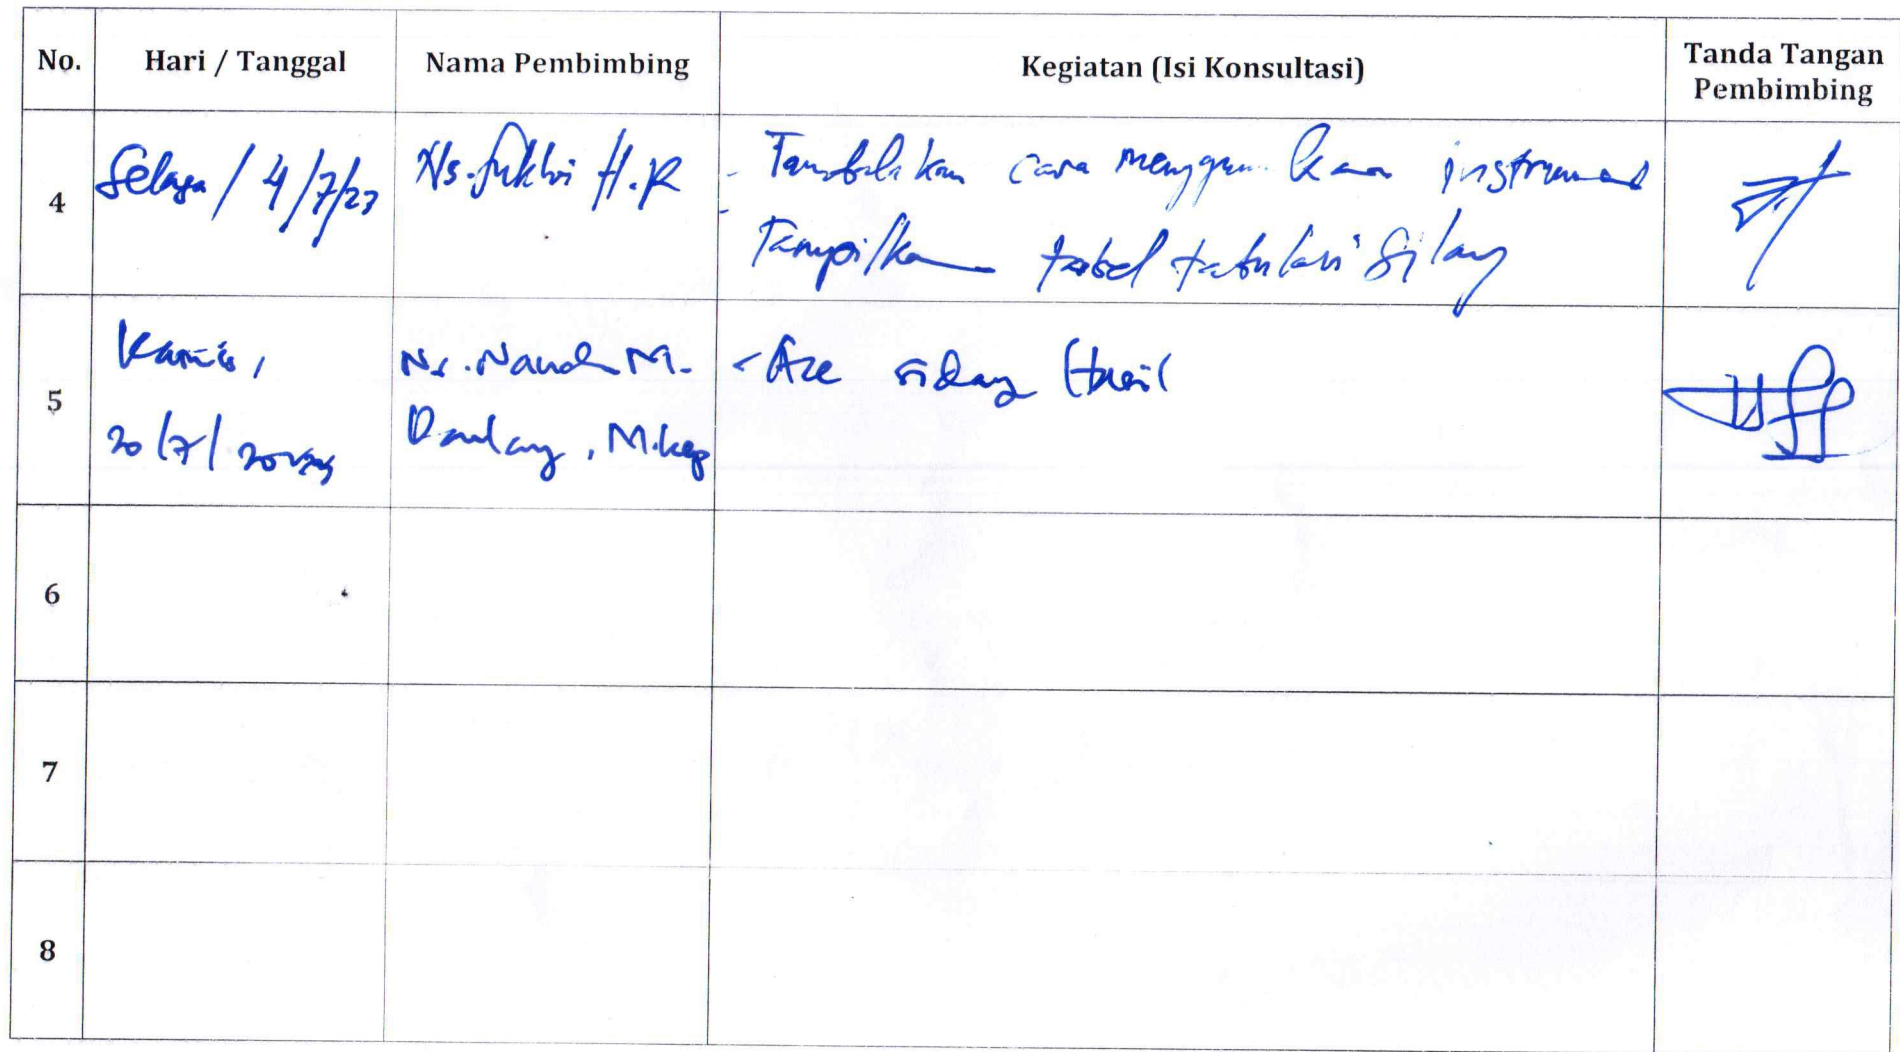 No.
Hari / Tanggal
Nama Pembimbing
Kegiatan (Isi Konsultasi)
Tanda Tangan
Pembimbing
4
Selasa / 4/7/23
Ns. H.R
- Tambahkan cara menggunakan instrumen
- Tampilkan tabel tabulasi silang
5
Kamis,
20/7/2023
Ns. M.
Daulay, M.kep
- Acc sidang Hasil
6
7
8